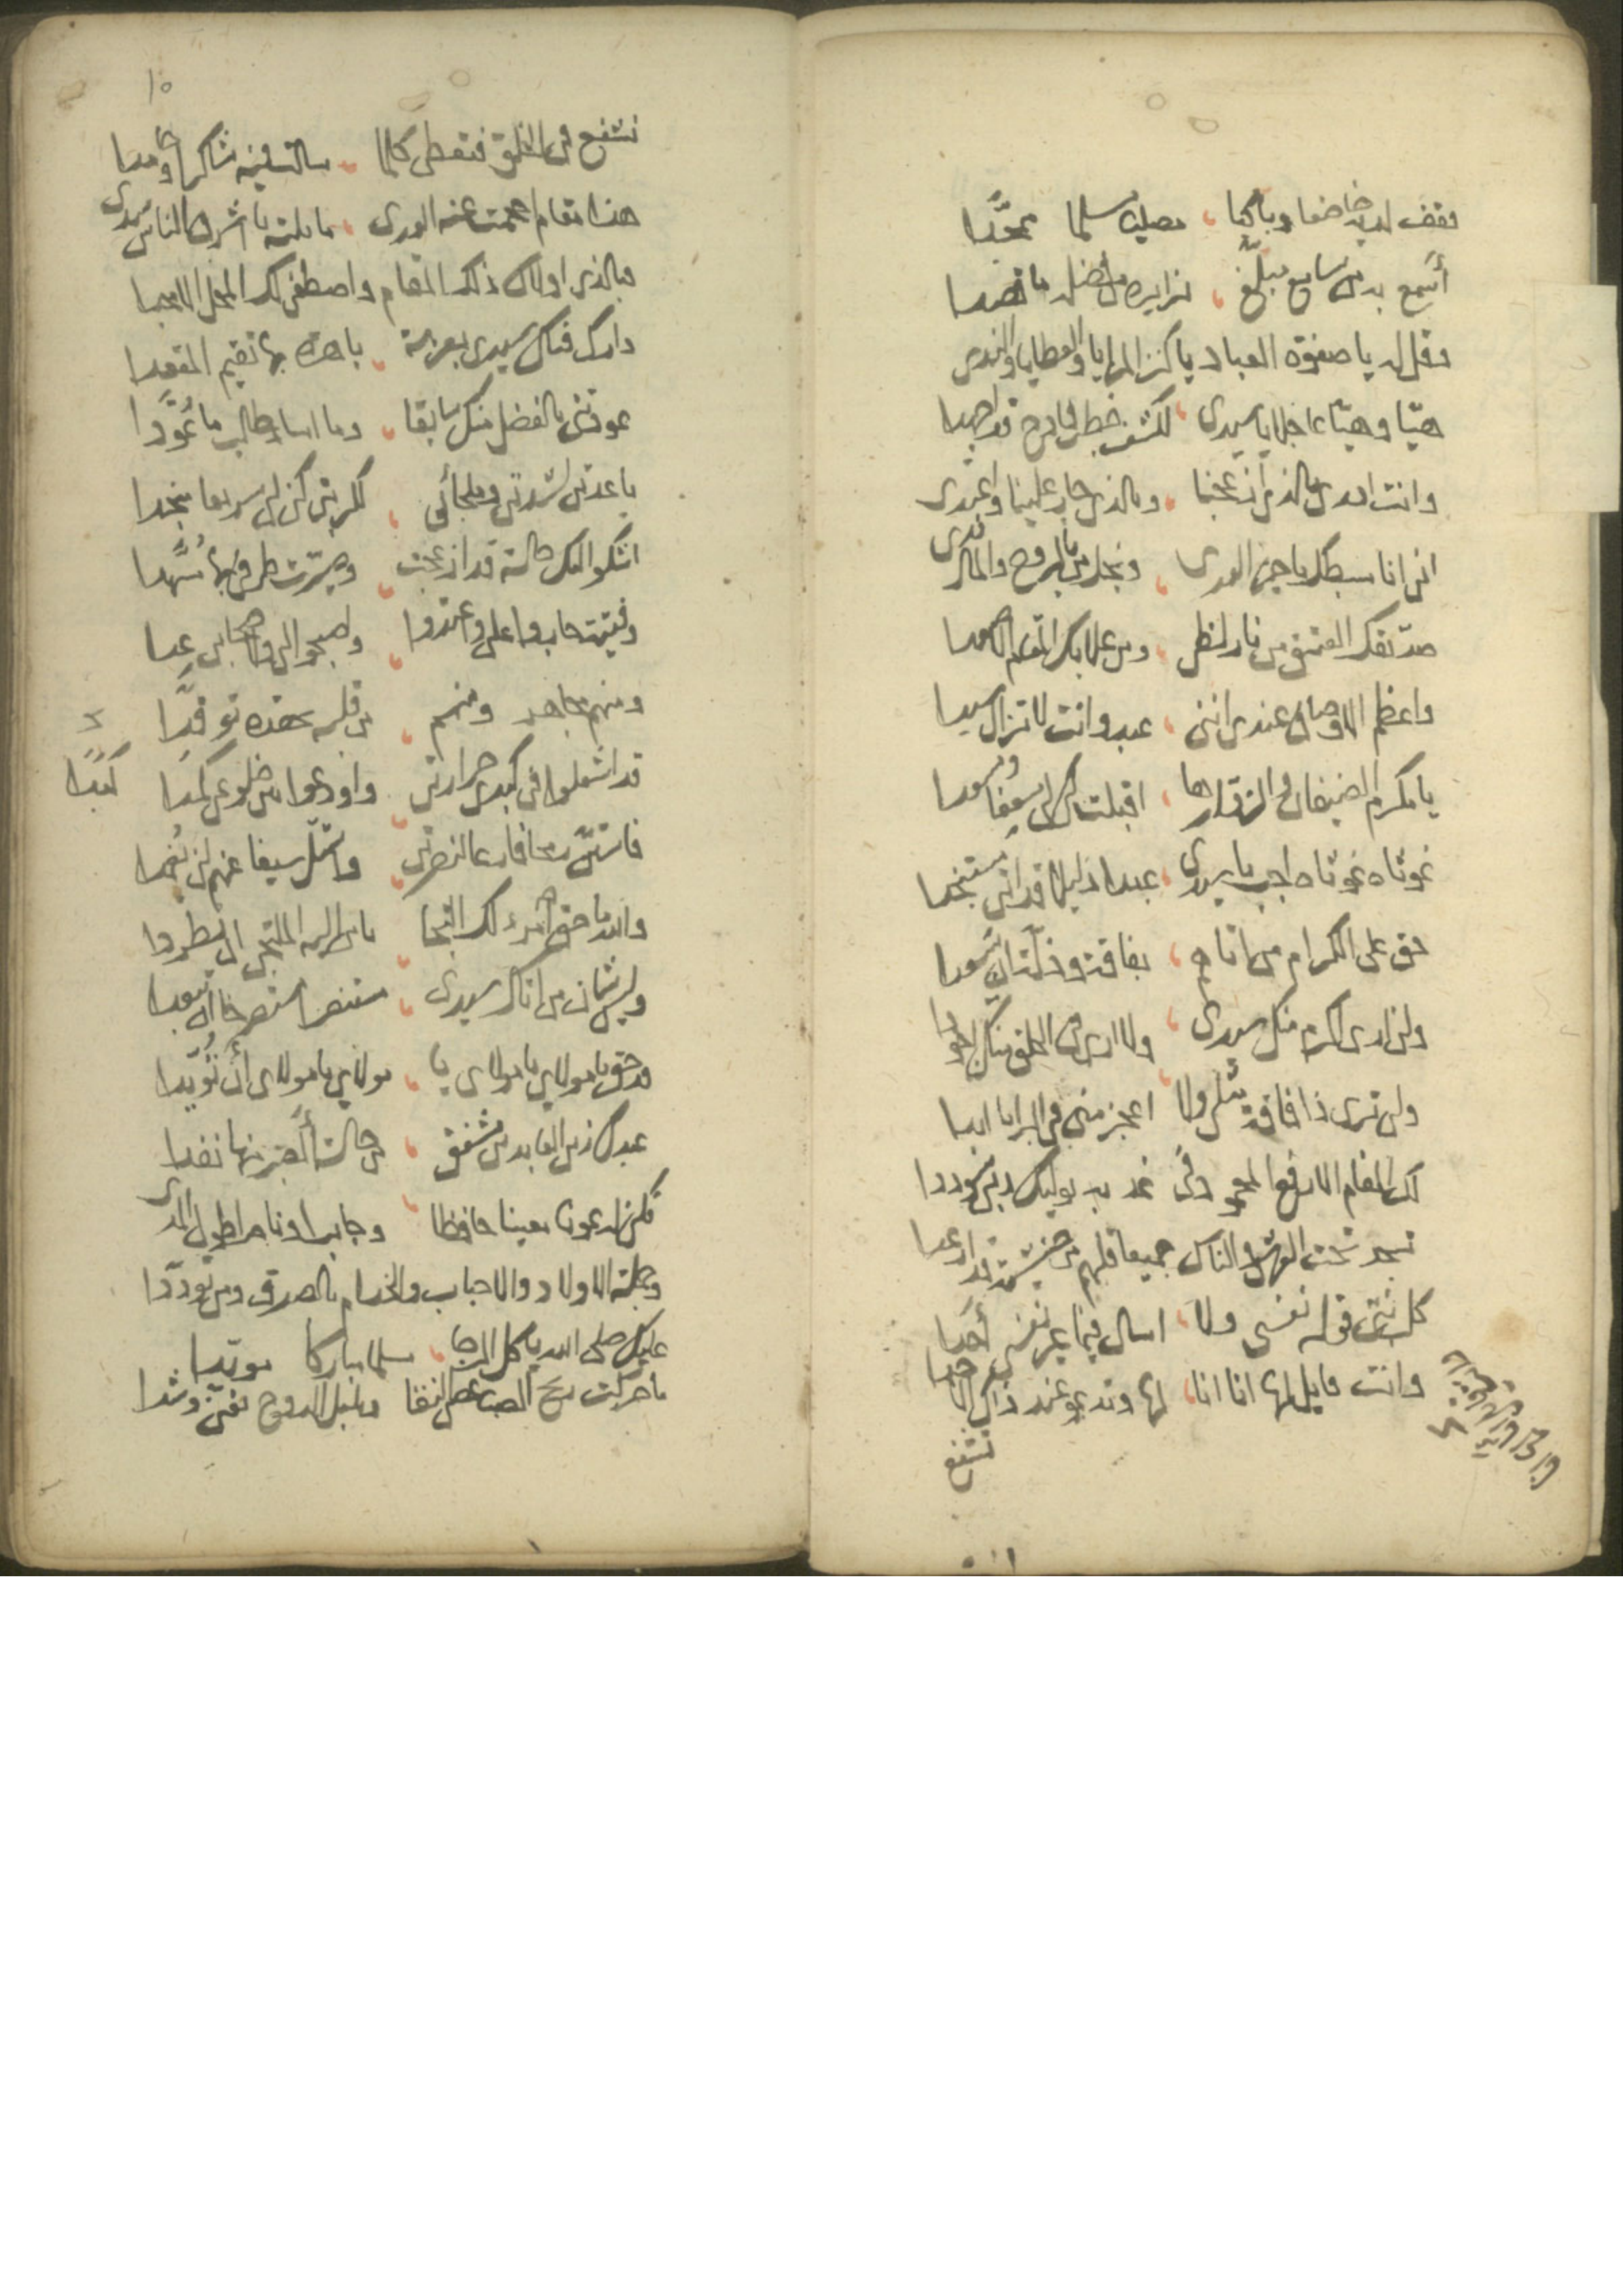 فقف لديه خاضعا وباكيا مصليا مسلما ممجدا
أسمع به من سامع مبلغ زايره من فضله ما قصدا
وقل له يا صفوة العباد يا كنز المزايا والعطايا والندى
هيا وهيا عاجلا يا سيدي لكشف خطب فادح قد اجهدا
وانت ادرى بالذي ازعجنا وبالذي جار علينا واعتدى
اني انا سبطك يا خير الورى ونجل من بالروح والمال فدى
صديقك العتيق من نار لظى ومن علا بك المقام الاصعدا
واعظم الاوصاف عندي انني عبد وانت لا تزال سيدا
يا مكرم الضيفان والزوار ها اقبلت كن لي مسعفا ومسعدا
غوثاه غوثاه اجب يا سيدي عبدا ذليلا قد اتى مستنجدا
حق على الكرام من اتاهم بفاقة وذلة ان يسعدا
ولن ارى اكرم منك سيدي ولا ارى في الخلق منك اجودا
ولن ترى ذا فاقة مثلي ولا اعجز مني في البرايا ابدا
لك المقام الارفع المحمود في غد به يوليك ربي سوددا
تسجد تحت العرش والناس جميعا قلبهم من خشية قد ارعدا
كل نبي قوله نفسي ولا اسال فيما غير نفسي أحدا
وانت قايل لها انا انا لها وتدعو عند ذاك الاحدا
تشفع
١٥
تشفع في الخلق فتعطى كلما سالت فيه شاكرا وحامدا
هذا مقام احجمت عنه الورى ما نلته يا اشرف الناس سدى
فبالذي اولاك ذلك المقام واصطفى لك المحل الامجدا
دارك فتاك سيدي بعزمة باهرة بها تقيم المقعدا
عودتني بالفضل منك سابقا وما اسا طالب ما تعودا
يا عدتي لشدتي وملجأي لكربتي كن لي سريعا منجدا
اشكو اليك حالة قد ازعجت وصيرت طرفي بها مسهدا
وفيت حاربوا علي واعتدوا واصبحوا لي ولاصحابي عدا
ومنهم مجاهر ومنهم من قلبه بحقده توقدا
قد اشعلوا في كبدي حرارتي واودعوا من ضلوعي كمدا
كبدا
فاستل سيفا عنهم لن يغمدا
والله ما حق امرء لك التجا باب اليه الملتجى ان يطردا
وليس شان من اتاك سيدي مستنصرا مستصرخا ان يبعدا
قد حق يا مولاي يا مولاي يا مولاي يا مولاي أن تؤيدا
عبدك زين العابدين مشفق من حالة ألصبر فيها نفدا
فكن له عونا معينا حافظا وجابرا وناصرا طول المدى
وجملة الاولاد والاحباب والخدام بالصدق ومن توددا
عليك صلى الله يا كل الرجا مسلما مباركا مويدا
ما حركت ريح الصبا غصن النقا وبلبل الدوح تغنى وشدا